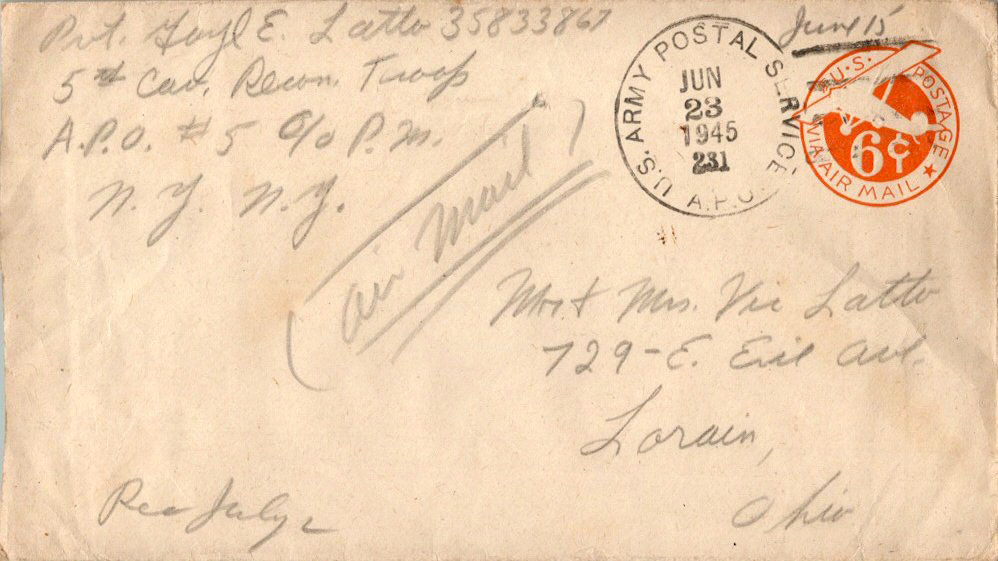 Pvt. Gayl E. Latto 35833867
5th Cav. Recon. Troop
A.P.O. #5 c/o P.M.
N.Y. N.Y.
June 15
U.S. ARMY POSTAL SERVICE
JUN
23
1945
231
A.P.O.
U.S. POSTAGE
6¢
VIA AIR MAIL
(Air Mail)
Mr & Mrs. Vic Latto
729-E. Erie Ave.
Lorain,
Ohio
Rec July 2